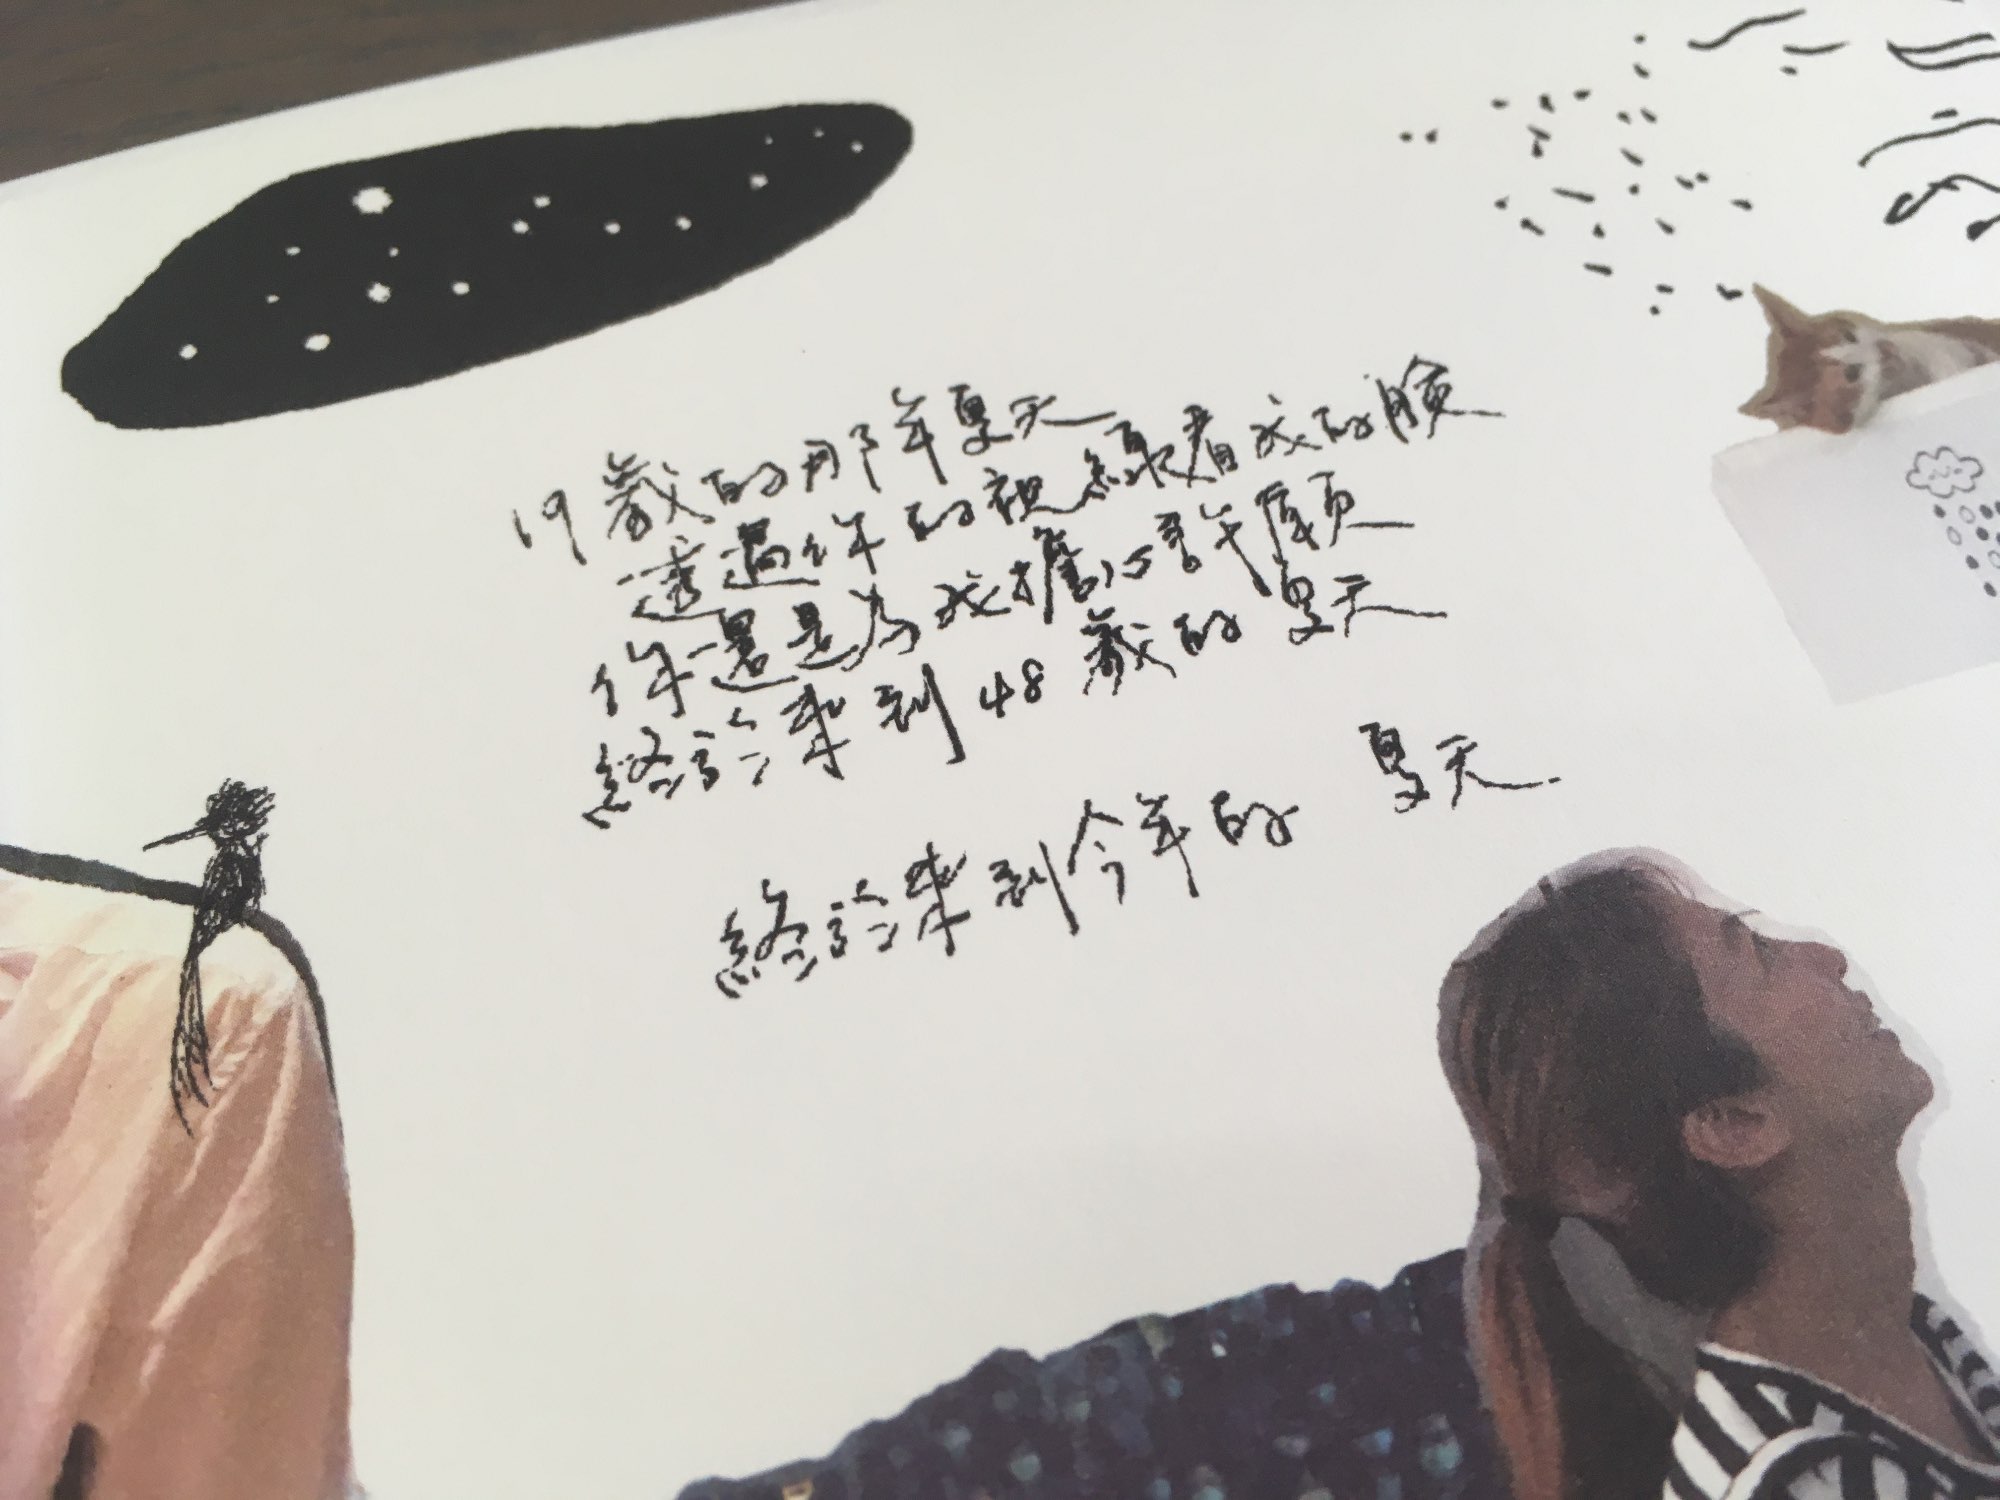 19歲的那年夏天
透過你的視線看我的臉
你還是為我擔心許願
終於來到48歲的夏天
終於來到今年的 夏天.